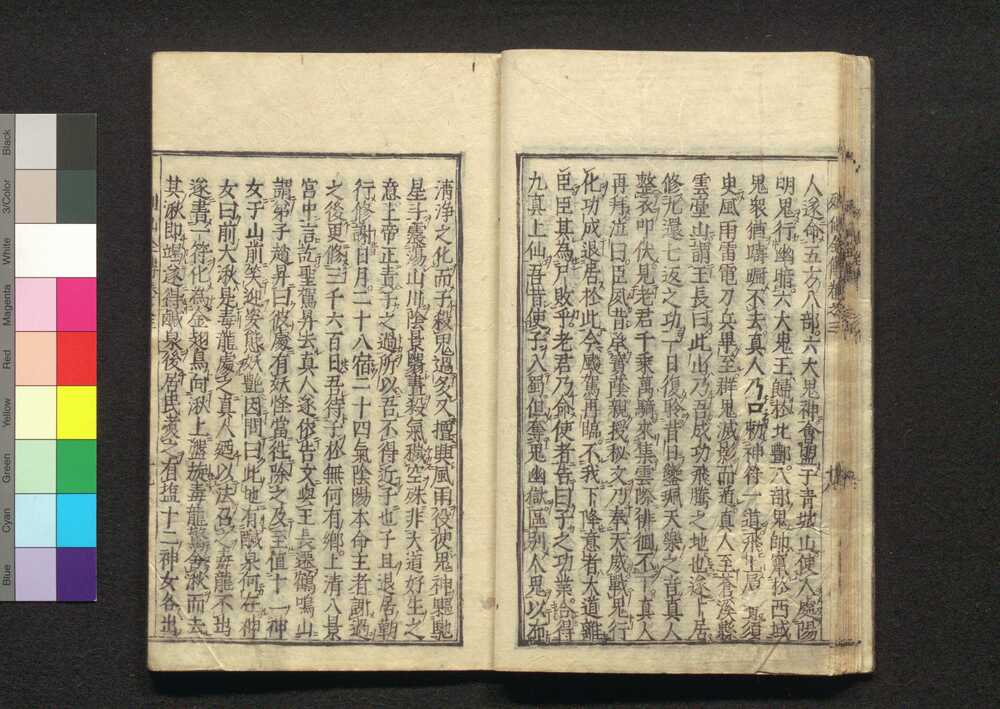 人遂命五方八部六大鬼神會盟于青城山使人處陽
明鬼行幽暗六大鬼王歸於北酆八部鬼帥竄於西域
鬼衆猶躊躕不去真人乃口勅神符一道飛上層須
臾風雨雷電刀兵畢至群鬼滅影而遁真人至蒼溪縣
雲臺山謂王長曰此山乃吾成功飛騰之地也遂卜居
修九還七返之功一日復聆昔日鑾珮天樂之音真人
整衣叩伏見老君千乘萬騎來集雲際徘徊不下真人
再拜泣曰臣夙昔承寶蔭親授秘文乃奉天威戰鬼行
化功成退居於此今飈駕再臨不我下降意者大道難
臣臣其為尸敗乎老君乃命使者告曰子之功業合得
九真上仙吾昔使子入蜀但奪鬼幽獄區別人鬼以布
清淨之化而子殺鬼過多又擅興風雨役使鬼神驅馳
星斗震蕩山川陰景翳晝殺氣穢空殊非大道好生之
意上帝正責子之過所以吾不得近子也子且退居朝
行修謝日月二十八宿二十四氣陰陽本命主者謝過
之後更修三千六百日吾待子於無何有鄉上清八景
宮中言訖聖駕昇去真人遂依告文與王長遷鶴鳴山
謂弟子趙昇曰彼處有妖怪當往除之及至值十二神
女于山前笑迎姿態妖艷因問曰此地有鹹泉何在神
女曰前大湫是毒龍處之真人廼以法召之毒龍不出
遂書一符化為金翅鳥向湫上盤旋毒龍驚舍湫而去
其湫即竭遂得鹹泉後居民煮之有塩十二神女各出
Black
3/Color
White
Magenta
Red
Yellow
Green
Cyan
Blue